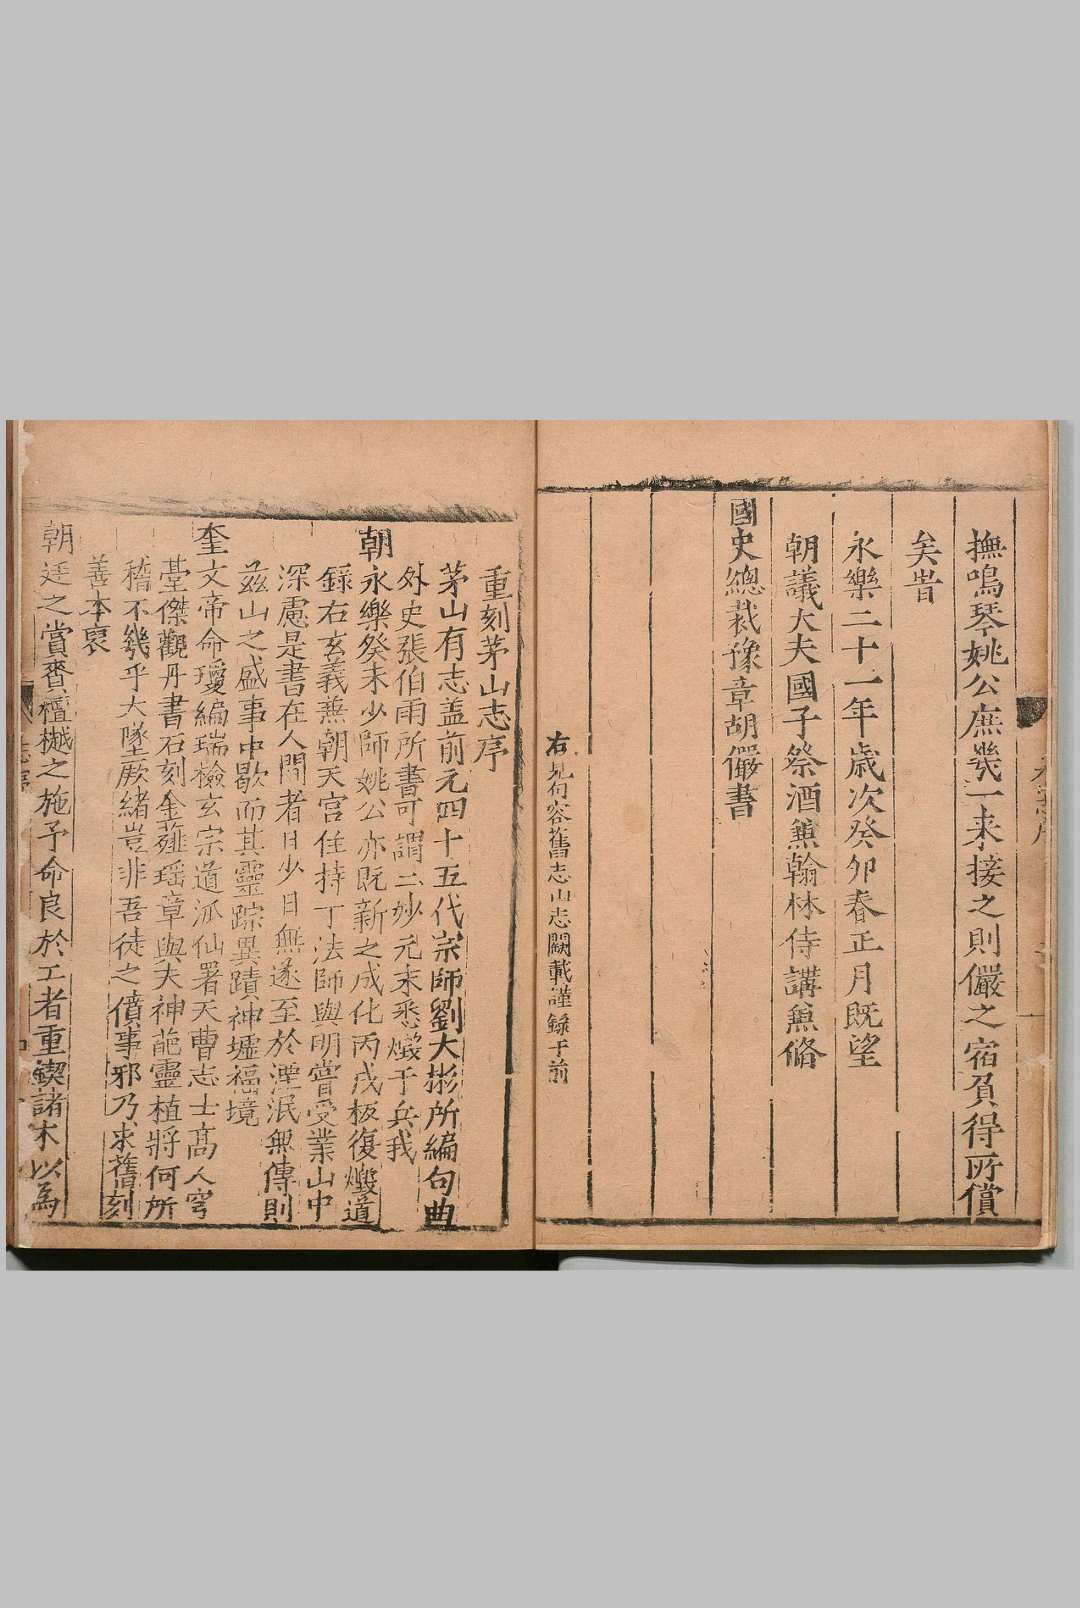 撫鳴琴姚公庶幾一来接之則儼之宿負得所償
矣昔
永樂二十一年歲次癸卯春正月既望
朝議大夫國子祭酒兼翰林侍講兼脩
國史總裁豫章胡儼書
右見句容舊志山志闕載謹錄于前
重刻茅山志序
茅山有志盖前元四十五代宗師劉大彬所編句曲
外史張伯雨所書可謂二妙元末悉燬于兵我
朝永樂癸未少師姚公亦既新之成化丙戌板復燬道
錄右玄義兼朝天宮住持丁法師與明嘗受業山中
深慮是書在人間者日少日無遂至於湮泯無傳則
茲山之盛事中歇而其靈踪異蹟神墟福境
奎文帝命瓊編瑞檢玄宗道派仙署天曹志士高人穹
臺傑觀丹書石刻金薤瑶章與夫神葩靈植將何所
稽不幾乎大墜厥緒豈非吾徒之僨事邪乃求舊刻
善本裒
朝廷之賞賚檀樾之施予命良於工者重鍥諸木以為
志序